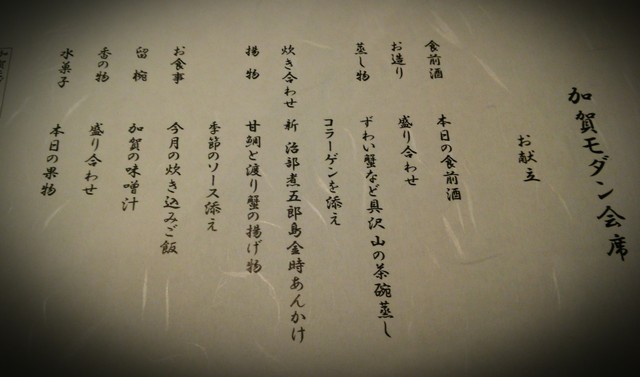 加賀モダン会席
お献立
食前酒 本日の食前酒
お造り 盛り合わせ
蒸し物 ずわい蟹など具沢山の茶碗蒸し
コラーゲンを添え
炊き合わせ 新 治部煮五郎島金時あんかけ
揚物 甘鯛と渡り蟹の揚げ物
季節のソース添え
お食事 今月の炊き込みご飯
留椀 加賀の味噌汁
香の物 盛り合わせ
水菓子 本日の果物